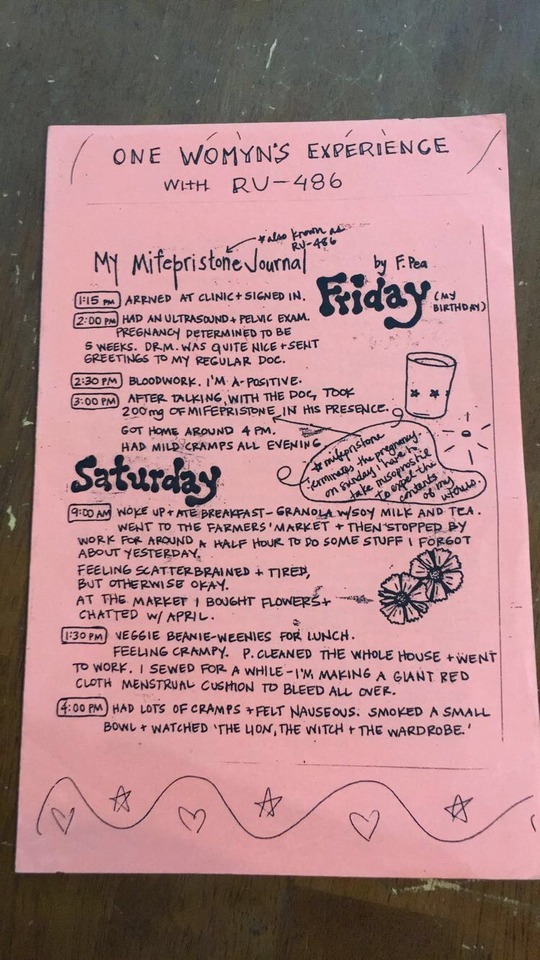 ONE WOMYN'S EXPERIENCE
WITH RU-486
*also known as
RU-486
My Mifepristone Journal
by F. Pea
Friday (MY
BIRTHDAY)
1:15 PM ARRIVED AT CLINIC + SIGNED IN.
2:00 PM HAD AN ULTRASOUND + PELVIC EXAM.
PREGNANCY DETERMINED TO BE
5 WEEKS. DR.M. WAS QUITE NICE + SENT
GREETINGS TO MY REGULAR DOC.
2:30 PM BLOODWORK. I'M A-POSITIVE.
3:00 PM AFTER TALKING WITH THE DOC, TOOK
200mg OF MIFEPRISTONE IN HIS PRESENCE.
GOT HOME AROUND 4 PM.
HAD MILD CRAMPS ALL EVENING.
*mifepristone
terminates the pregnancy.
on sunday i have to
take misoprostle
to expel the
contents
of my
womb.
Saturday
9:00 AM WOKE UP + ATE BREAKFAST - GRANOLA W/SOY MILK AND TEA.
WENT TO THE FARMERS' MARKET + THEN STOPPED BY
WORK FOR AROUND A HALF HOUR TO DO SOME STUFF I FORGOT
ABOUT YESTERDAY.
FEELING SCATTERBRAINED + TIRED,
BUT OTHERWISE OKAY.
AT THE MARKET I BOUGHT FLOWERS +
CHATTED W/ APRIL.
1:30 PM VEGGIE BEANIE-WEENIES FOR LUNCH.
FEELING CRAMPY. P. CLEANED THE WHOLE HOUSE + WENT
TO WORK. I SEWED FOR A WHILE - I'M MAKING A GIANT RED
CLOTH MENSTRUAL CUSHION TO BLEED ALL OVER.
4:00 PM HAD LOTS OF CRAMPS + FELT NAUSEOUS. SMOKED A SMALL
BOWL + WATCHED 'THE LION, THE WITCH + THE WARDROBE.'